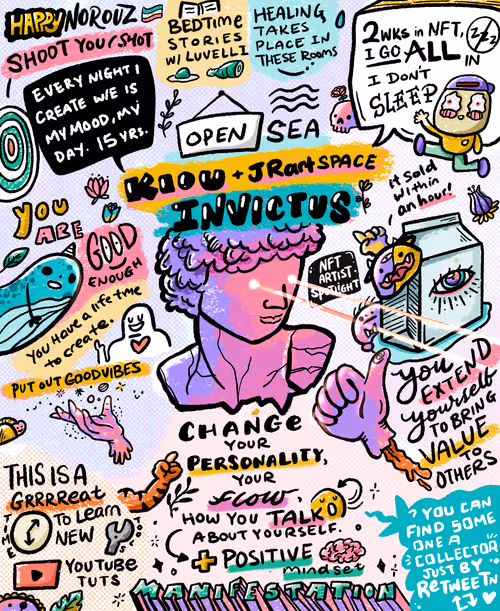 HAPPY NOROUZ
SHOOT YOUR SHOT
BEDTIME
STORIES
W/ LUVELLI
HEALING
TAKES
PLACE IN
THESE ROOMS
2WKS in NFT,
I GO ALL IN
I DON'T
SLEEP
ZZZ
EVERY NIGHT I
CREATE W/E IS
MY MOOD, MY
DAY. 15 YRS.
OPEN SEA
KIOU + JRart SPACE
INVICTUS
it SOLD
within
an hour!
YOU
ARE
GOOD
ENOUGH
NFT
ARTIST
SPOTLIGHT
You HAVE a life time
to create.
PUT OUT GOOD VIBES
you
EXTEND
yourself
TO BRING
VALUE
TO
OTHERS
CHANGE
YOUR
PERSONALITY,
YOUR
flow,
HOW YOU TALK
ABOUT YOURSELF.
+ POSITIVE
mindset
MANIFESTATION
THIS IS A
GRRRReat
TIME
TO Learn
NEW
YOUTUBE
TUTS
YOU CAN
FIND SOME
ONE A
COLLECTOR
JUST BY
ReTWEETN